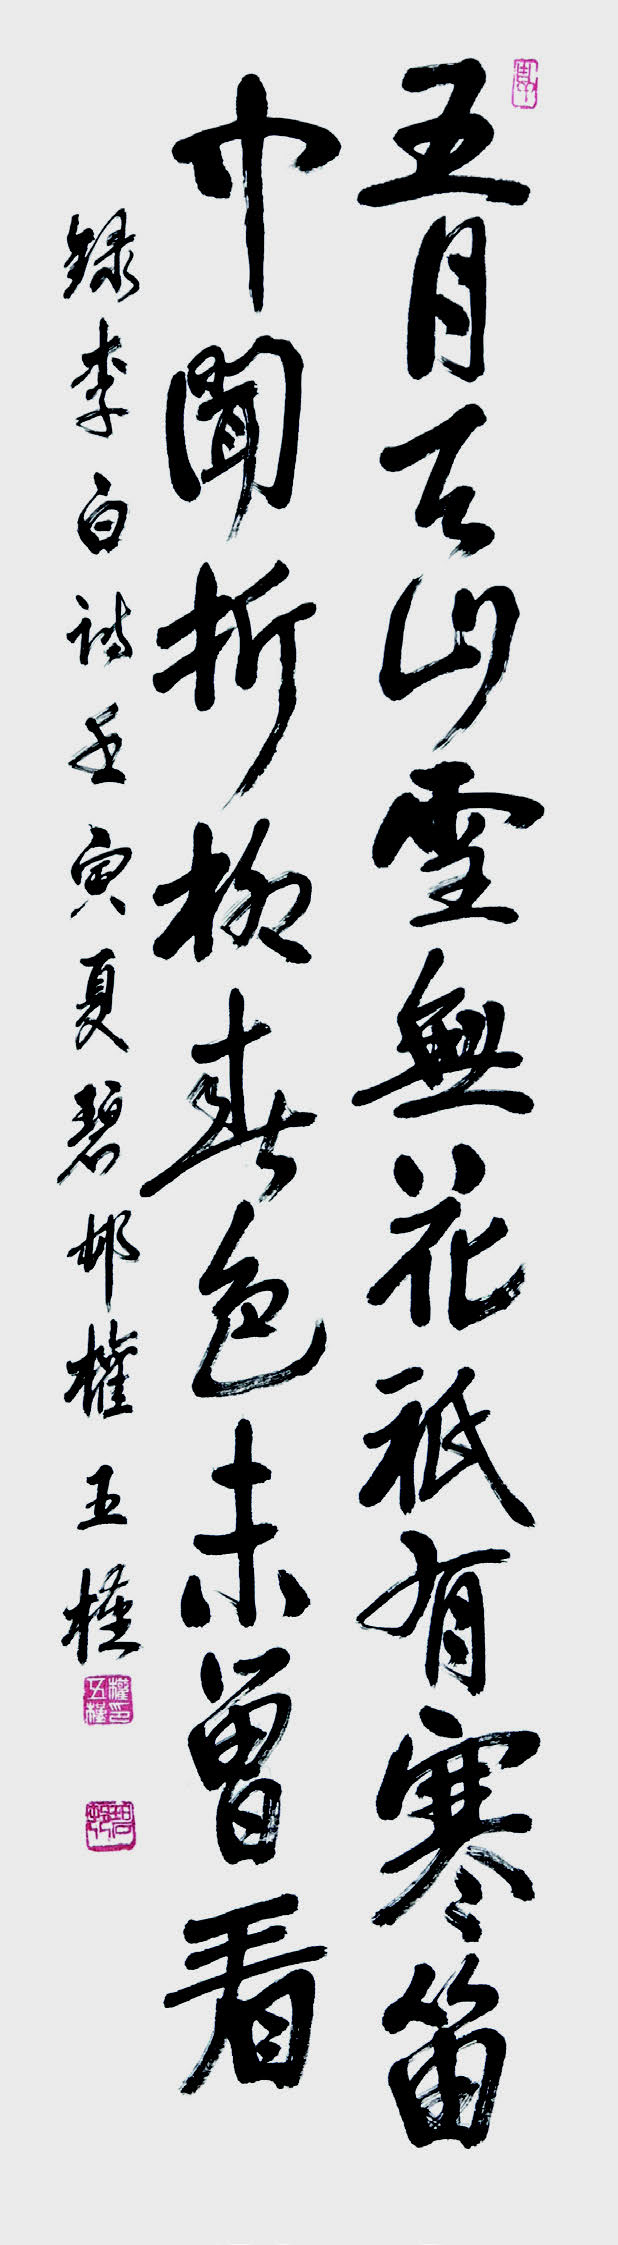 五月天山雪無花祇有寒笛
中聞折柳春色未曾看
録李白詩壬寅夏碧邨權五槿
權印五槿
碧邨